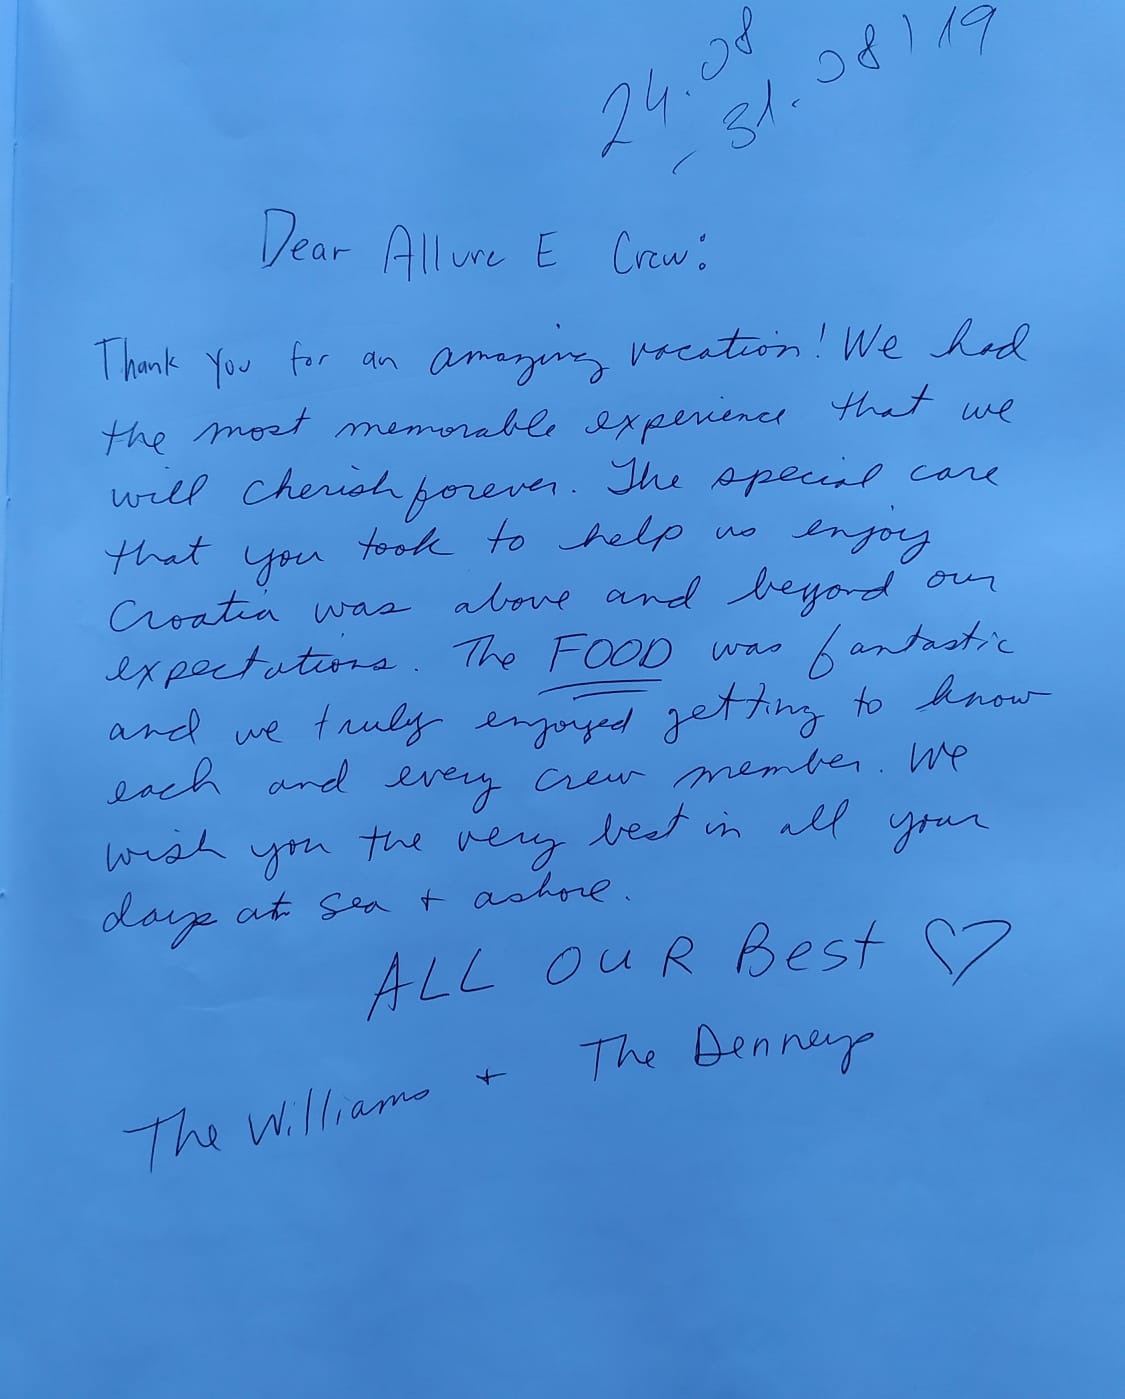 24.08
- 31.08/19
Dear Allure E Crew:
Thank You for an amazing vacation! We had
the most memorable experience that we
will cherish forever. The special care
that you took to help us enjoy
Croatia was above and beyond our
expectations. The FOOD was fantastic
and we truly enjoyed getting to know
each and every crew member. We
wish you the very best in all your
days at sea + ashore.
ALL OUR Best ♡
The Williams + The Denneys